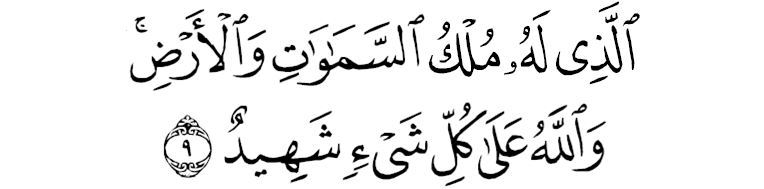 ٱلَّذِى لَهُۥ مُلْكُ ٱلسَّمَـٰوَٰتِ وَٱلْأَرْضِ ۚ
وَٱللَّهُ عَلَىٰ كُلِّ شَىْءٍ شَهِيدٌ ٩